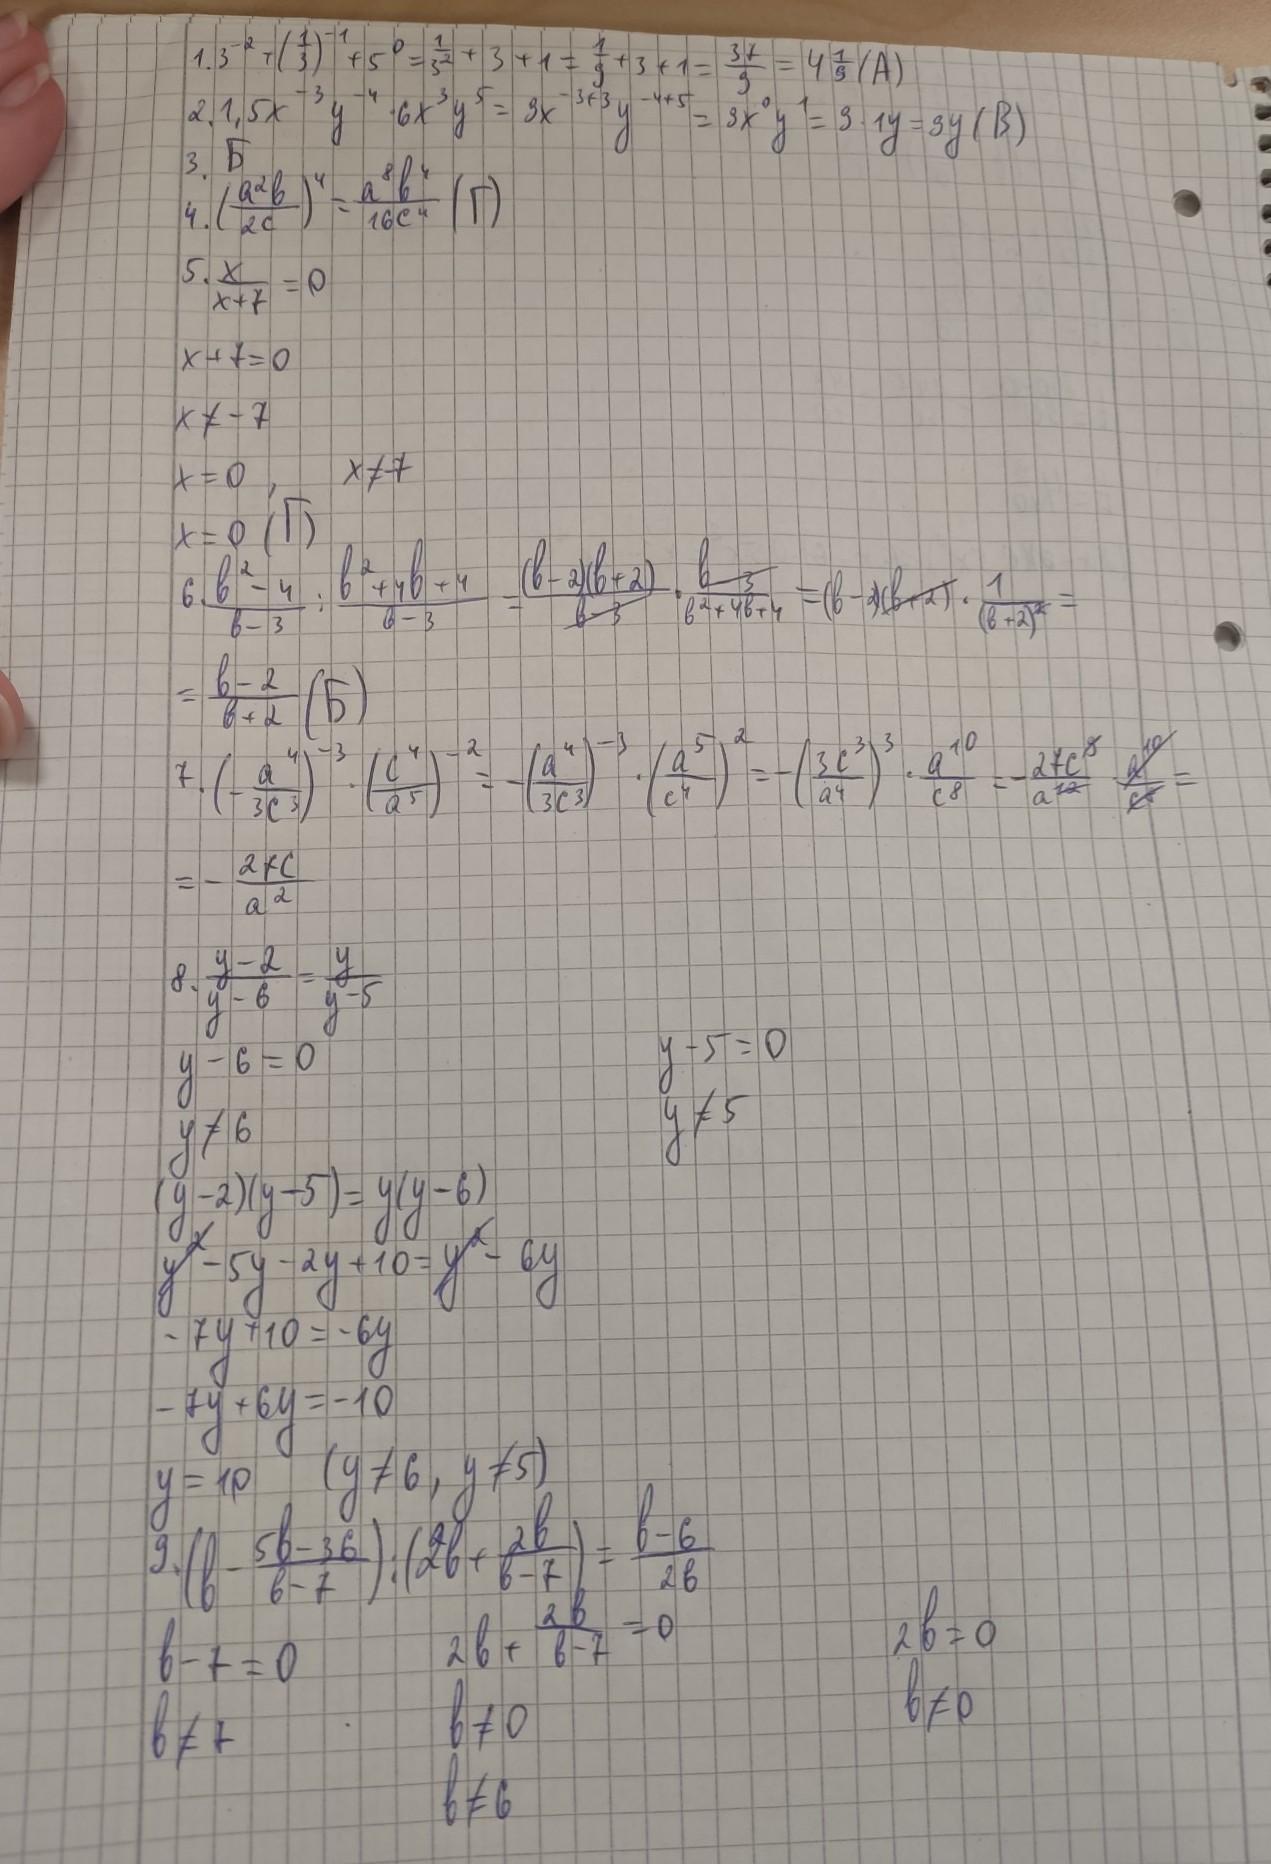 1. 3⁻² + (1/3)⁻¹ + 5⁰ = 1/3² + 3 + 1 = 1/9 + 3 + 1 = 37/9 = 4 1/9 (А)
2. 1,5x⁻³y⁻⁴ · 6x³y⁵ = 9x⁻³⁺³y⁻⁴⁺⁵ = 9x⁰y¹ = 9 · 1y = 9y (В)
3. Б
4. (a²b/2c)⁴ = a⁸b⁴/16c⁴ (Г)
5. x/(x+7) = 0
x+7=0
x≠-7
x=0, x≠-7
x=0 (Г)
6. (b²-4)/(b-3) : (b²+4b+4)/(b-3) = (b-2)(b+2)/(b-3) · (b-3)/(b²+4b+4) = (b-2)(b+2) · 1/(b+2)² =
= (b-2)/(b+2) (Б)
7. (-a⁴/3c³)⁻³ · (c⁴/a⁵)⁻² = -(a⁴/3c³)⁻³ · (a⁵/c⁴)² = -(3c³/a⁴)³ · a¹⁰/c⁸ = -27c⁹/a¹² · a¹⁰/c⁸ =
= -27c/a²
8. (y-2)/(y-6) = y/(y-5)
y-6=0 y-5=0
y≠6 y≠5
(y-2)(y-5)=y(y-6)
y²-5y-2y+10=y²-6y
-7y+10=-6y
-7y+6y=-10
y=10 (y≠6, y≠5)
9. (b - (5b-36)/(b-7)) : (2b + 2b/(b-7)) = (b-6)/2b
b-7=0 2b + 2b/(b-7) = 0 2b=0
b≠7 b≠0 b≠0
b≠6